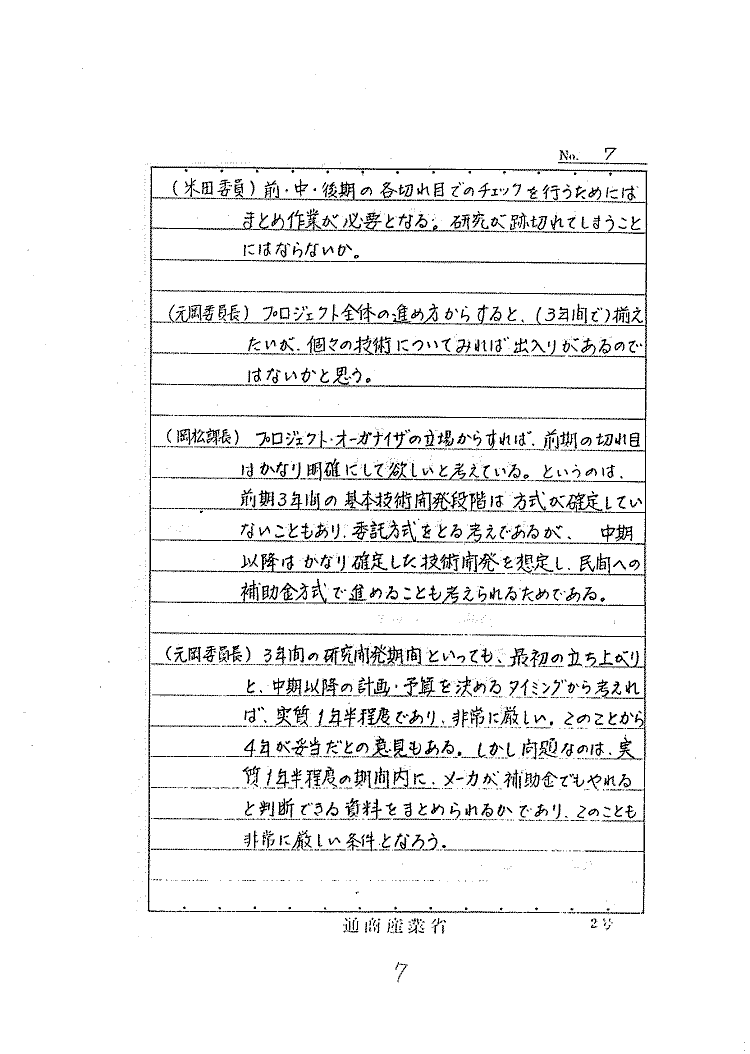 No. 7
(米田委員) 前・中・後期の各切れ目でのチェックを行うためには
まとめ作業が必要となる。研究が跡切れてしまうこと
にはならないか。
(元岡委員長) プロジェクト全体の進め方からすると、(3年間で)揃え
たいが、個々の技術についてみれば出入りがあるので
はないかと思う。
(岡松課長) プロジェクト・オーガナイザの立場からすれば、前期の切れ目
はかなり明確にして欲しいと考えている。というのは、
前期3年間の基本技術開発段階は方式が確定してい
ないこともあり、委託方式をとる考えであるが、中期
以降はかなり確定した技術開発を想定し、民間への
補助金方式で進めることも考えられるためである。
(元岡委員長) 3年間の研究開発期間といっても、最初の立ち上がり
と、中期以降の計画・予算を決めるタイミングから考えれ
ば、実質1年半程度であり、非常に厳しい。このことから
4年が妥当だとの意見もある。しかし問題なのは、実
質1年半程度の期間内に、メーカが補助金でもやれる
と判断できる資料をまとめられるかであり、このことも
非常に厳しい条件となろう。
通商産業省 2号
7